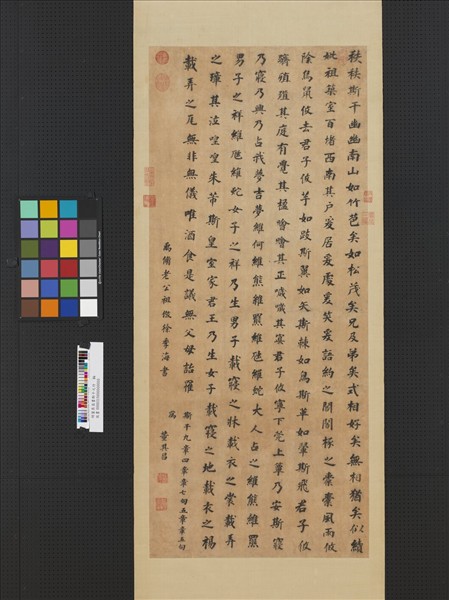 秩秩斯干幽幽南山如竹苞矣如松茂矣兄及弟矣式相好矣無相猶矣似續
妣祖築室百堵西南其戶爰居爰處爰笑爰語約之閣閣椓之橐橐風雨攸
除鳥鼠攸去君子攸芋如跂斯翼如矢斯棘如鳥斯革如翬斯飛君子攸
躋殖殖其庭有覺其楹噲噲其正噦噦其冥君子攸寧下莞上簟乃安斯寢
乃寢乃興乃占我夢吉夢維何維熊維羆維虺維蛇大人占之維熊維羆
男子之祥維虺維蛇女子之祥乃生男子載寢之牀載衣之裳載弄
之璋其泣喤喤朱芾斯皇室家君王乃生女子載寢之地載衣之裼
載弄之瓦無非無儀唯酒食是議無父母詒罹
斯干九章四章章七句五章章五句
為老公祖倣徐季海書
董其昌